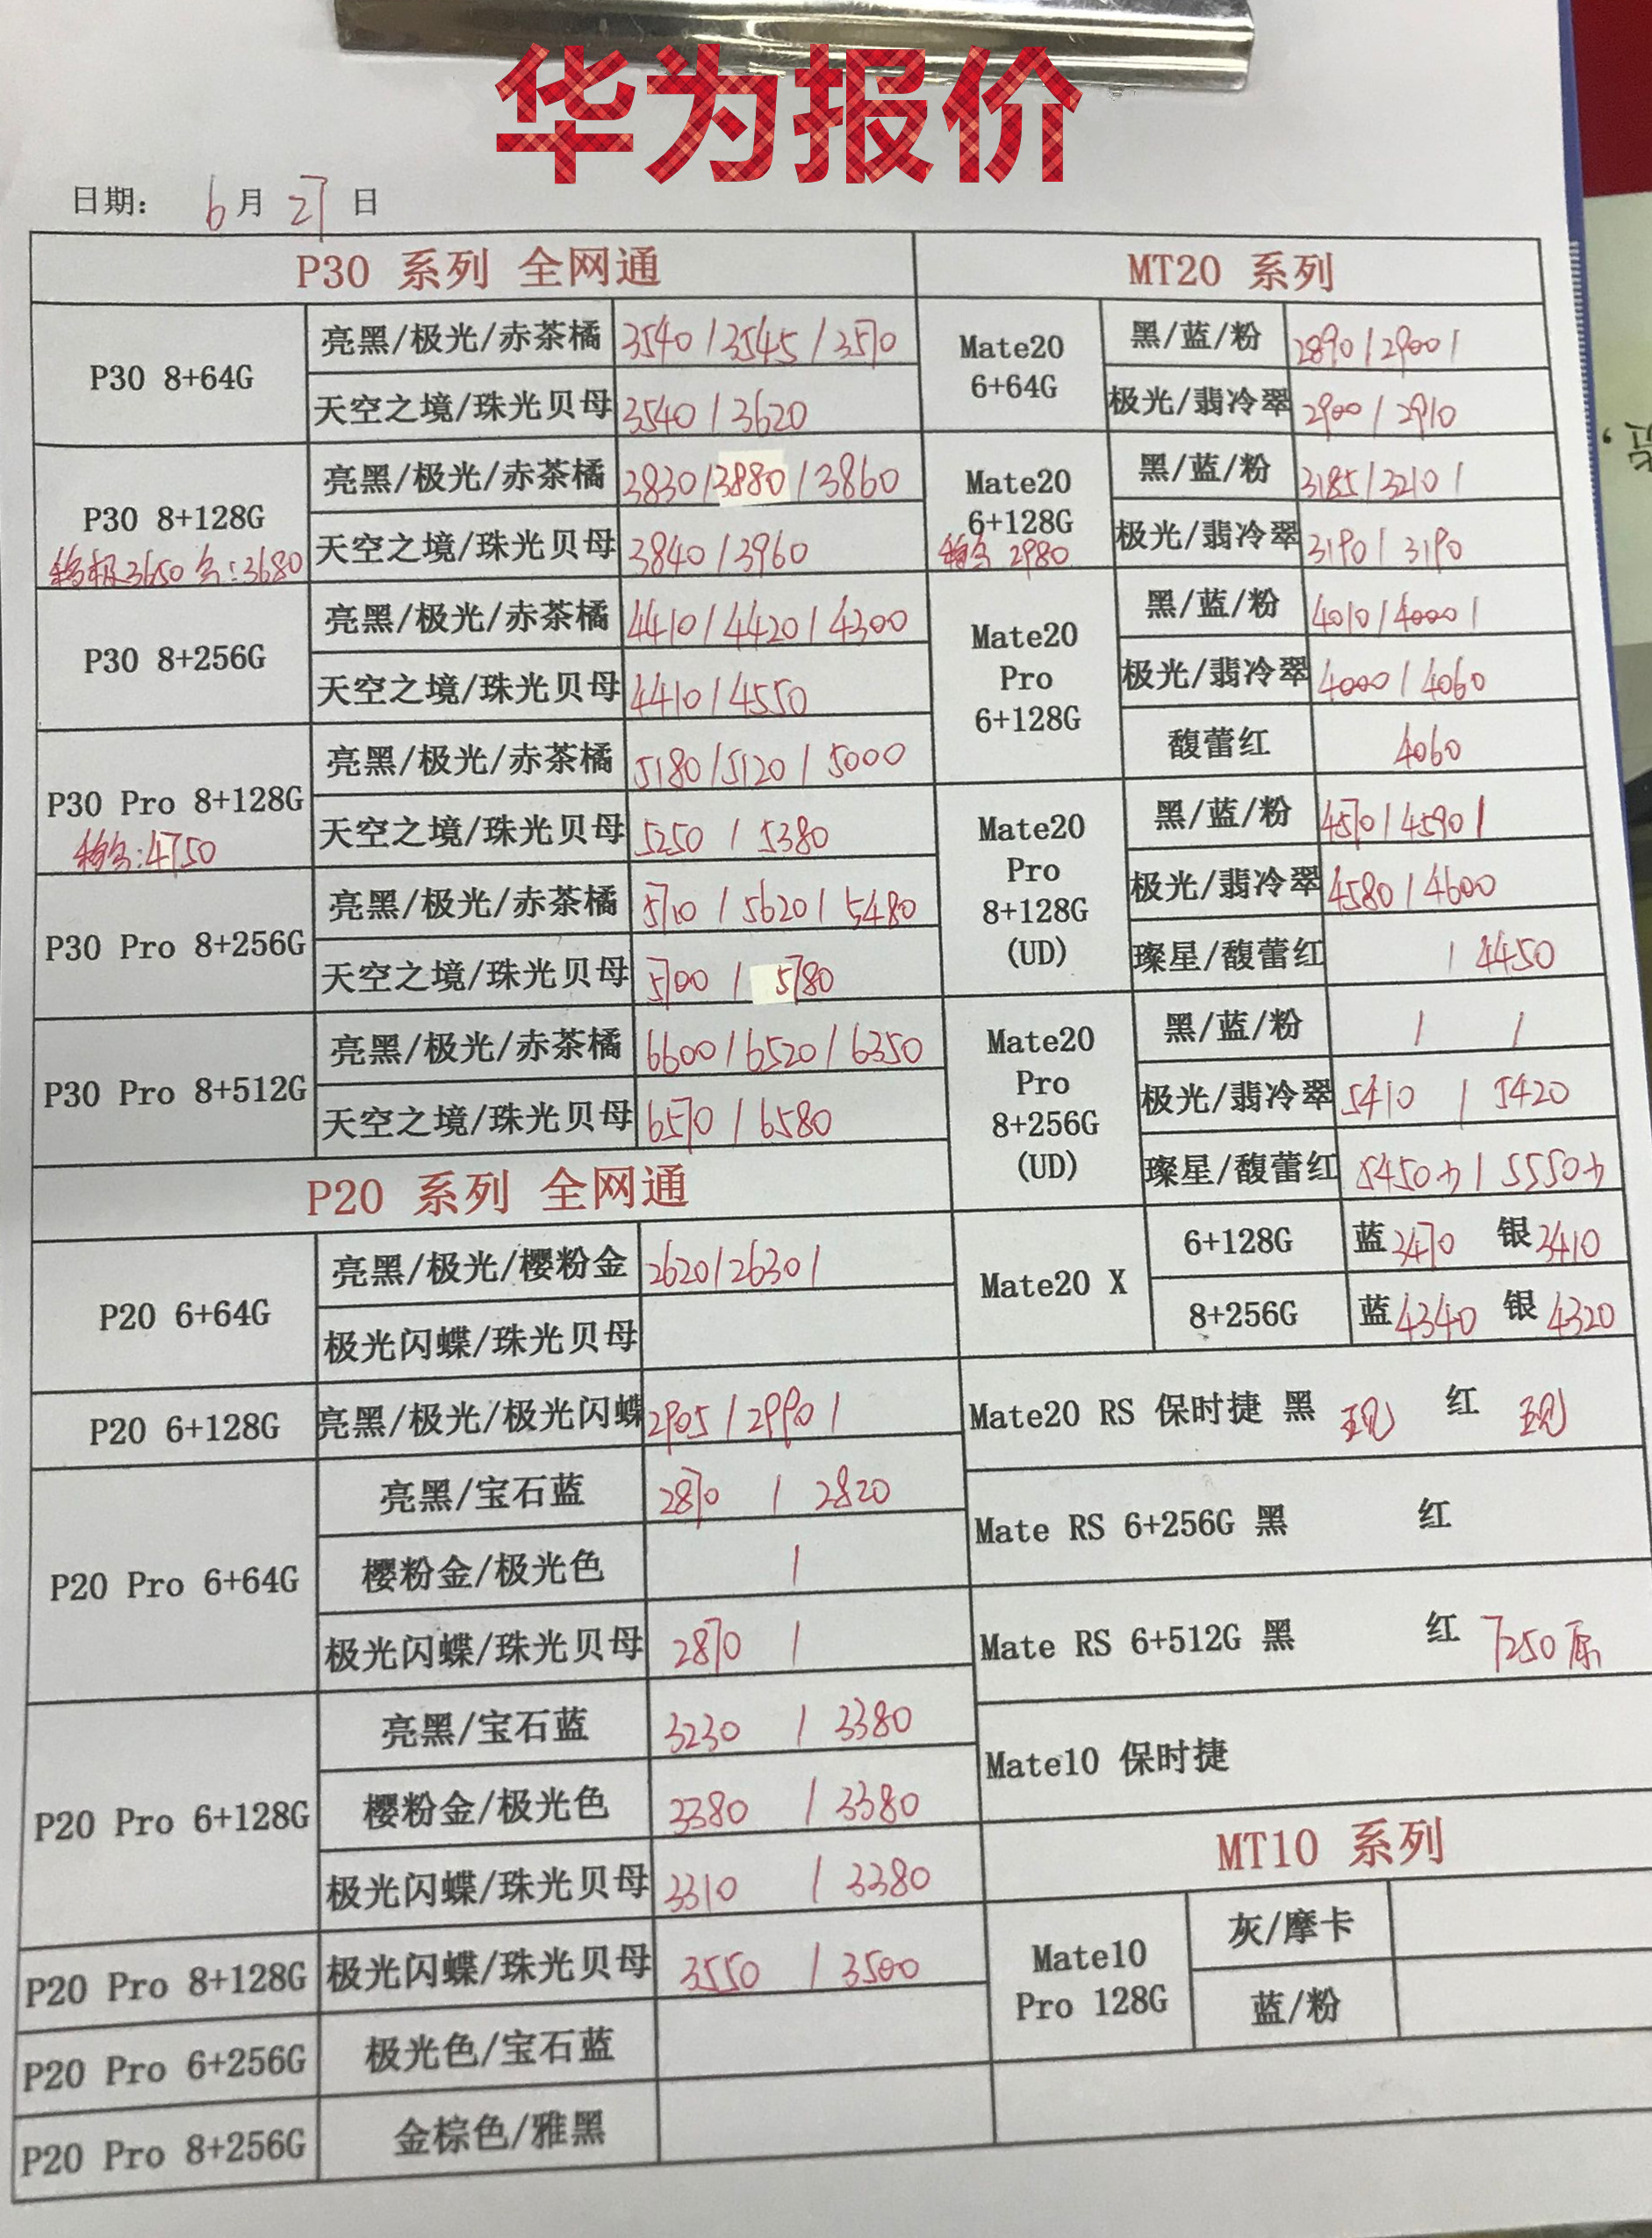 华为报价
日期: 6月27日
P30 系列 全网通
P30 8+64G
亮黑/极光/赤茶橘 3540/3545/3570
天空之境/珠光贝母 3540/3620
P30 8+128G
亮黑/极光/赤茶橘 3830/3880/3860
天空之境/珠光贝母 3840/3960
移极3650 会:3680
P30 8+256G
亮黑/极光/赤茶橘 4410/4420/4300
天空之境/珠光贝母 4410/4550
P30 Pro 8+128G
亮黑/极光/赤茶橘 5180/5120/5000
天空之境/珠光贝母 5250/5380
:4750
P30 Pro 8+256G
亮黑/极光/赤茶橘 5710/5620/5480
天空之境/珠光贝母 5700/5780
P30 Pro 8+512G
亮黑/极光/赤茶橘 6600/6520/6350
天空之境/珠光贝母 6570/6580
P20 系列 全网通
P20 6+64G
亮黑/极光/樱粉金 2620/2630/
极光闪蝶/珠光贝母
P20 6+128G
亮黑/极光/极光闪蝶 2905/2990/
P20 Pro 6+64G
亮黑/宝石蓝 2870/2820
樱粉金/极光色 /
极光闪蝶/珠光贝母 2870/
P20 Pro 6+128G
亮黑/宝石蓝 3230/3380
樱粉金/极光色 3380/3380
极光闪蝶/珠光贝母 3310/3380
P20 Pro 8+128G
极光闪蝶/珠光贝母 3550/3500
P20 Pro 6+256G
极光色/宝石蓝
P20 Pro 8+256G
金棕色/雅黑
MT20 系列
Mate20
6+64G
黑/蓝/粉 2890/2900/
极光/翡冷翠 2900/2910
Mate20
6+128G
2980
黑/蓝/粉 3185/3210/
极光/翡冷翠 3190/3190
Mate20
Pro
6+128G
黑/蓝/粉 4010/4000/
极光/翡冷翠 4000/4060
馥蕾红 4060
Mate20
Pro
8+128G
(UD)
黑/蓝/粉 4570/4590/
极光/翡冷翠 4580/4600
璨星/馥蕾红 /4450
Mate20
Pro
8+256G
(UD)
黑/蓝/粉 / /
极光/翡冷翠 5410/5420
璨星/馥蕾红 5450/5550
Mate20 X
6+128G 蓝3470 银3410
8+256G 蓝4340 银4320
Mate20 RS 保时捷 黑 现 红 现
Mate RS 6+256G 黑 红
Mate RS 6+512G 黑 红 7250原
Mate10 保时捷
MT10 系列
Mate10
Pro 128G
灰/摩卡
蓝/粉